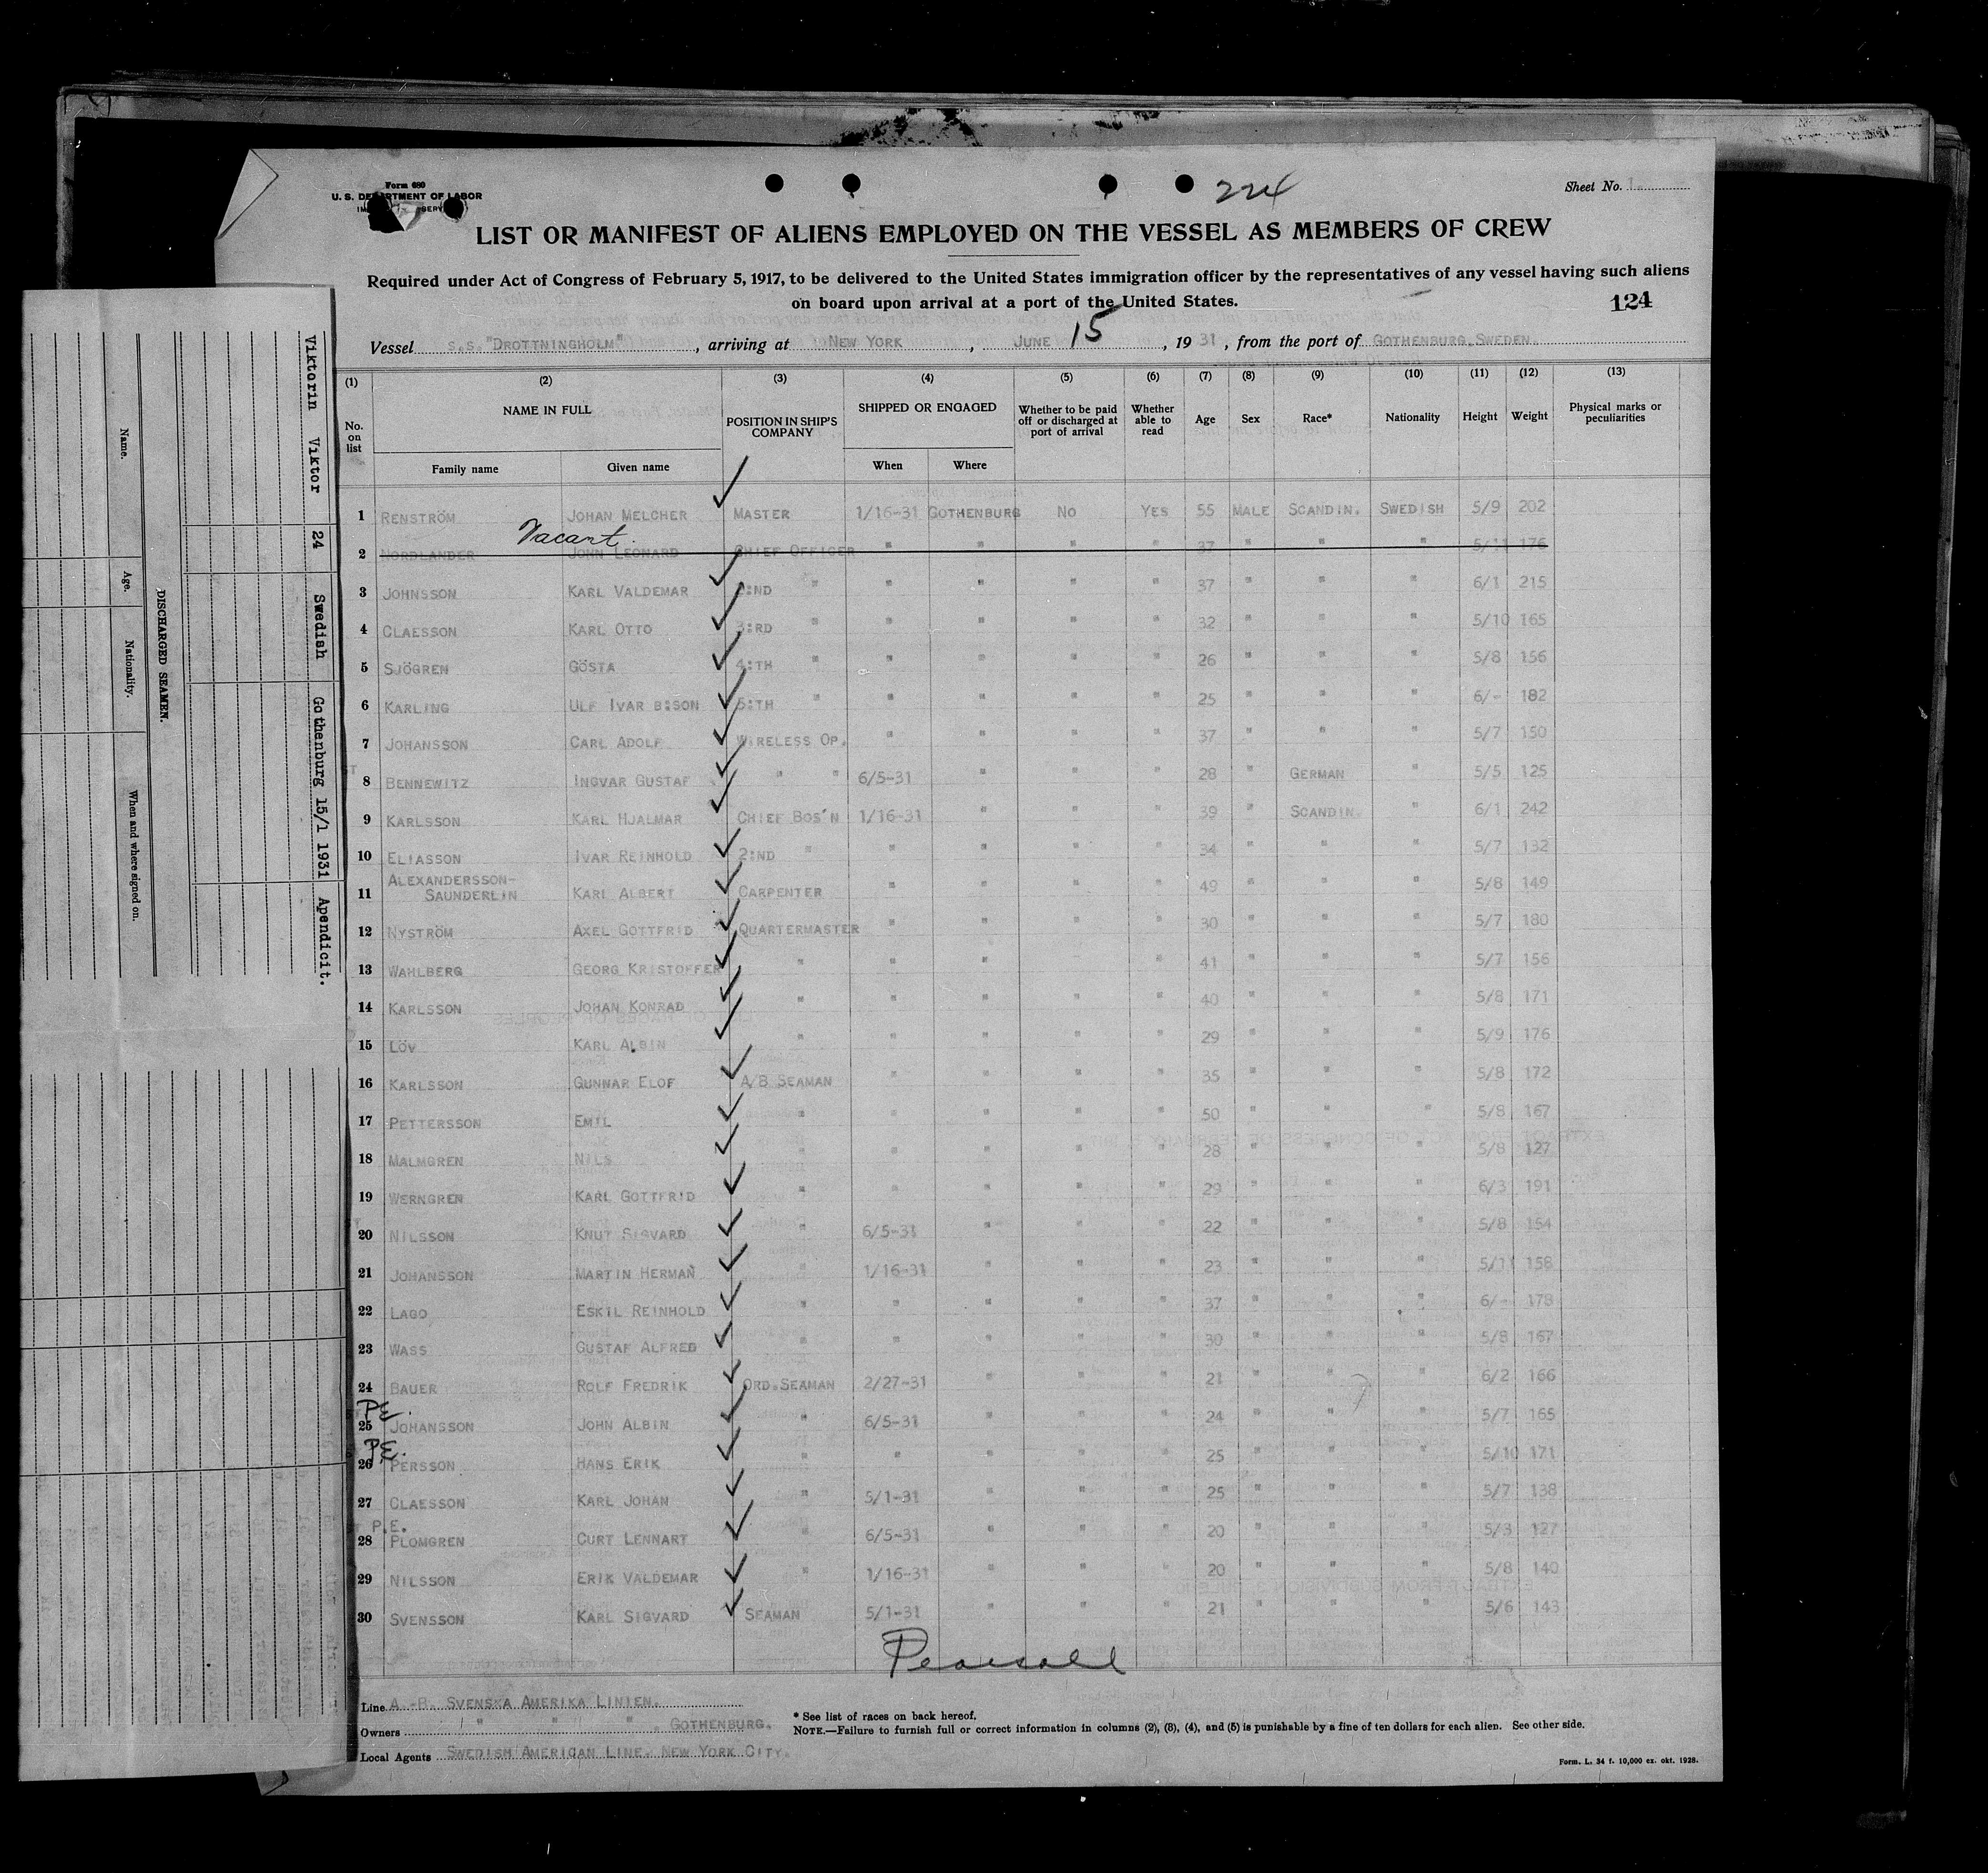 Form 680
U. S. DEPARTMENT OF LABOR
224
Sheet No. 1.
LIST OR MANIFEST OF ALIENS EMPLOYED ON THE VESSEL AS MEMBERS OF CREW
Required under Act of Congress of February 5, 1917, to be delivered to the United States immigration officer by the representatives of any vessel having such aliens
on board upon arrival at a port of the United States.
124
Vessel S.S. "DROTTNINGHOLM", arriving at NEW YORK, JUNE 15, 1931, from the port of GOTHENBURG, SWEDEN.
(1) (2) (3) (4) (5) (6) (7) (8) (9) (10) (11) (12) (13)
No. on list NAME IN FULL Family name Given name POSITION IN SHIP'S COMPANY SHIPPED OR ENGAGED When Where Whether to be paid off or discharged at port of arrival Whether able to read Age Sex Race* Nationality Height Weight Physical marks or peculiarities
1 RENSTRÖM JOHAN MELCHER MASTER 1/16-31 GOTHENBURG NO YES 55 MALE SCANDIN. SWEDISH 5/9 202
Vacant.
2 NORDLANDER JOHN LEONARD CHIEF OFFICER " " " " 37 " " " 5/11 176
3 JOHNSSON KARL VALDEMAR 2:ND " " " " " 37 " " " 6/1 215
4 CLAESSON KARL OTTO 3:RD " " " " " 32 " " " 5/10 165
5 SJÖGREN GÖSTA 4:TH " " " " " 26 " " " 5/8 156
6 KARLING ULF IVAR B:SON 5:TH " " " " " 25 " " " 6/- 182
7 JOHANSSON CARL ADOLF WIRELESS OP. " " " " 37 " " " 5/7 150
8 BENNEWITZ INGVAR GUSTAF " " 6/5-31 " " " 28 " GERMAN " 5/5 125
9 KARLSSON KARL HJALMAR CHIEF BOS'N 1/16-31 " " " 39 " SCANDIN. " 6/1 242
10 ELIASSON IVAR REINHOLD 2:ND " " " " " 34 " " " 5/7 132
11 ALEXANDERSSON-
SAUNDERLIN KARL ALBERT CARPENTER " " " " 49 " " " 5/8 149
12 NYSTRÖM AXEL GOTTFRID QUARTERMASTER " " " " 30 " " " 5/7 180
13 WAHLBERG GEORG KRISTOFFER " " " " " 41 " " " 5/7 156
14 KARLSSON JOHAN KONRAD " " " " " 40 " " " 5/8 171
15 LÖV KARL ALBIN " " " " " 29 " " " 5/9 176
16 KARLSSON GUNNAR ELOF A/B SEAMAN " " " " 35 " " " 5/8 172
17 PETTERSSON EMIL " " " " " 50 " " " 5/8 167
18 MALMGREN NILS " " " " " 28 " " " 5/8 127
19 WERNGREN KARL GOTTFRID " " " " " 29 " " " 6/3 191
20 NILSSON KNUT SIGVARD " 6/5-31 " " " 22 " " " 5/8 154
21 JOHANSSON MARTIN HERMAN " 1/16-31 " " " 23 " " " 5/11 158
22 LAGO ESKIL REINHOLD " " " " " 37 " " " 6/- 178
23 WASS GUSTAF ALFRED " " " " " 30 " " " 5/8 167
24 BAUER ROLF FREDRIK ORD. SEAMAN 2/27-31 " " " 21 " " " 6/2 166
P.E.
25 JOHANSSON JOHN ALBIN " 6/5-31 " " " 24 " " " 5/7 165
P.E.
26 PERSSON HANS ERIK " " " " " 25 " " " 5/10 171
27 CLAESSON KARL JOHAN " 5/1-31 " " " 25 " " " 5/7 138
P.E.
28 PLOMGREN CURT LENNART " 6/5-31 " " " 20 " " " 5/3 127
29 NILSSON ERIK VALDEMAR " 1/16-31 " " " 20 " " " 5/8 140
30 SVENSSON KARL SIGVARD SEAMAN 5/1-31 " " " 21 " " " 5/6 143
Pearsall
Line A.-B. SVENSKA AMERIKA LINIEN.
Owners " " " , GOTHENBURG.
Local Agents SWEDISH AMERICAN LINE. NEW YORK CITY.
* See list of races on back hereof.
NOTE.—Failure to furnish full or correct information in columns (2), (3), (4), and (5) is punishable by a fine of ten dollars for each alien. See other side.
Form. L. 34 f. 10,000 ex. okt. 1928.
DISCHARGED SEAMEN.
Name. Age. Nationality. When and where signed on.
Viktorin Viktor 24 Swedish Gothenburg 15/1 1931 Apendicit.